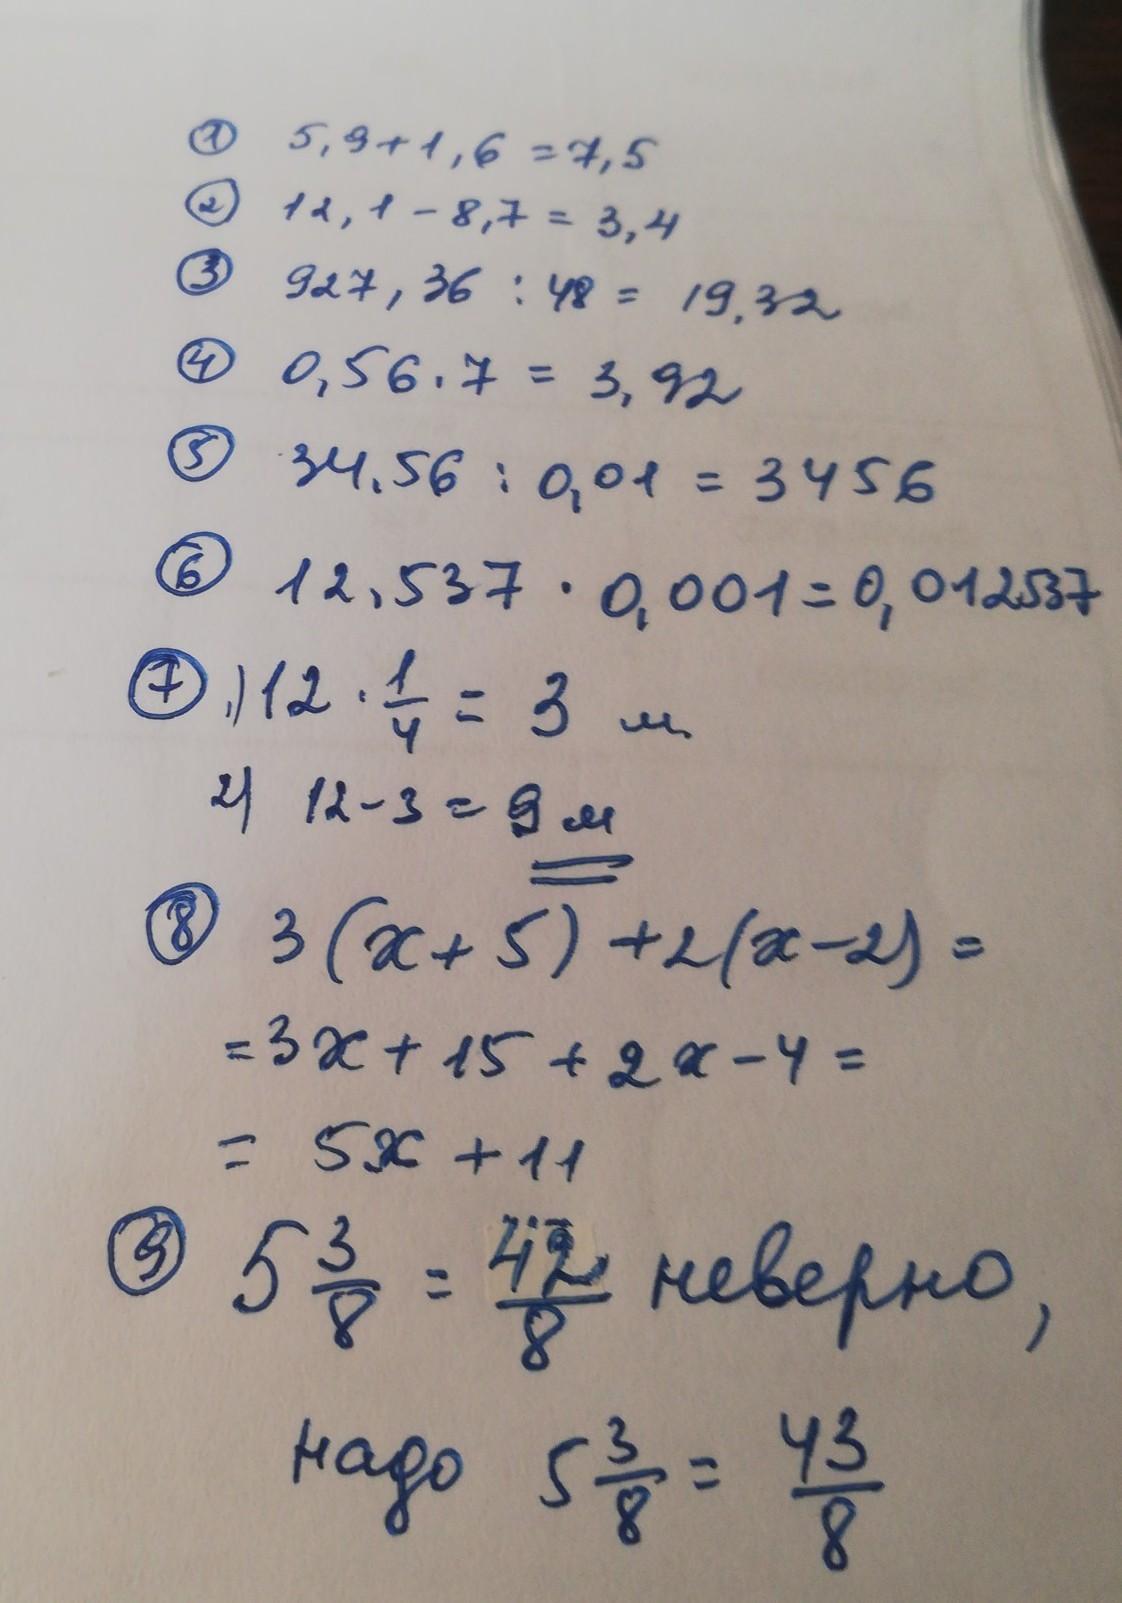 ① 5,9+1,6=7,5
② 12,1-8,7=3,4
③ 927,36:48= 19,32
④ 0,56·7=3,92
⑤ 34,56:0,01=3456
⑥ 12,537·0,001=0,012537
⑦ 1) 12·1/4=3 м
2) 12-3=9м
⑧ 3(x+5)+2(x-2)=
=3x+15+2x-4=
= 5x+11
⑨ 5 3/8 = 42/8 неверно,
надо 5 3/8 = 43/8